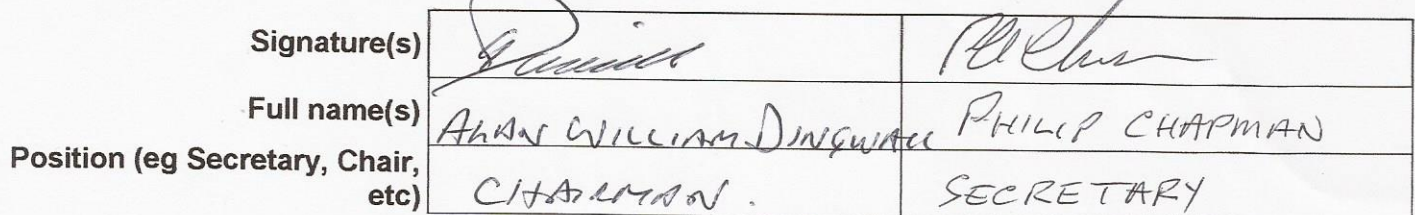 Signature(s)
Full name(s) ALAN WILLIAM DINGWALL PHILIP CHAPMAN
Position (eg Secretary, Chair,
etc) CHAIRMAN. SECRETARY